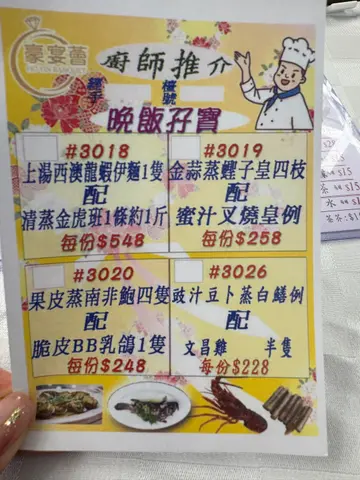 豪宴薈
HO YIN BANQUET
廚師推介
檯號
晚飯孖寶
#3018
上湯西澳龍蝦伊麵1隻
配
清蒸金虎班1條約1斤
每份$548
#3019
金蒜蒸鯉子皇四枝
配
蜜汁叉燒皇例
每份$258
#3020
果皮蒸南非鮑四隻
配
脆皮BB乳鴿1隻
每份$248
#3026
豉汁豆卜蒸白鱔例
配
文昌雞 半隻
每份$228
茶
水
$15